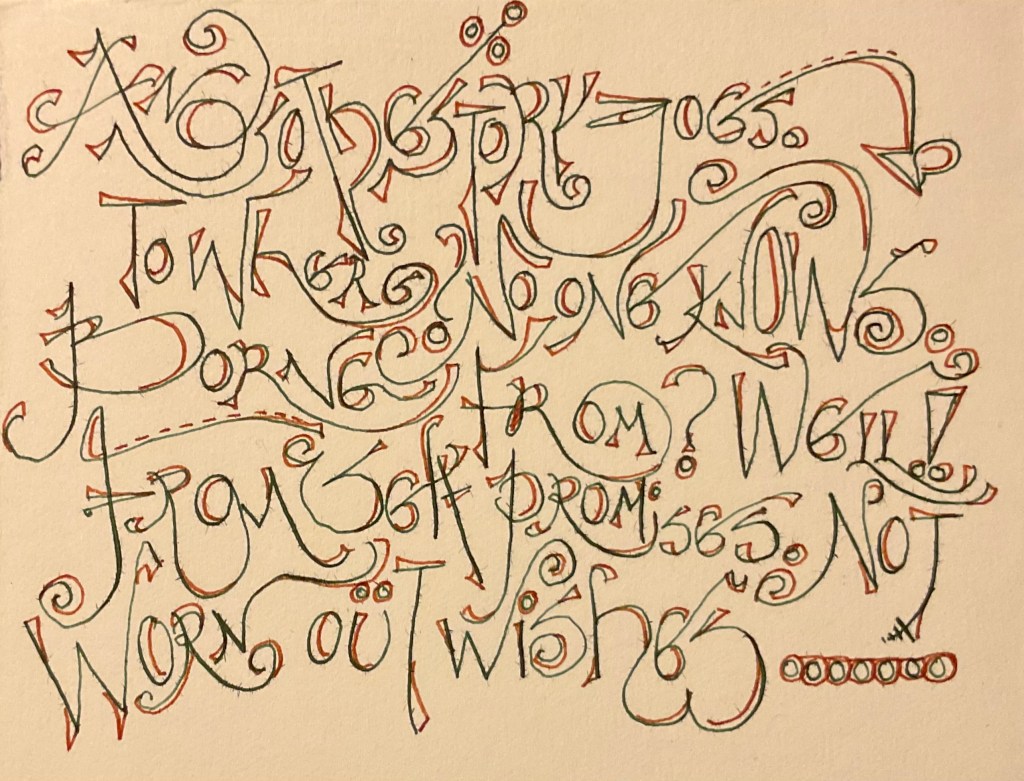 And so the story goes.
To where no one knows.
Borne from? Well!
From self promises. Not
Worn oüt wishes